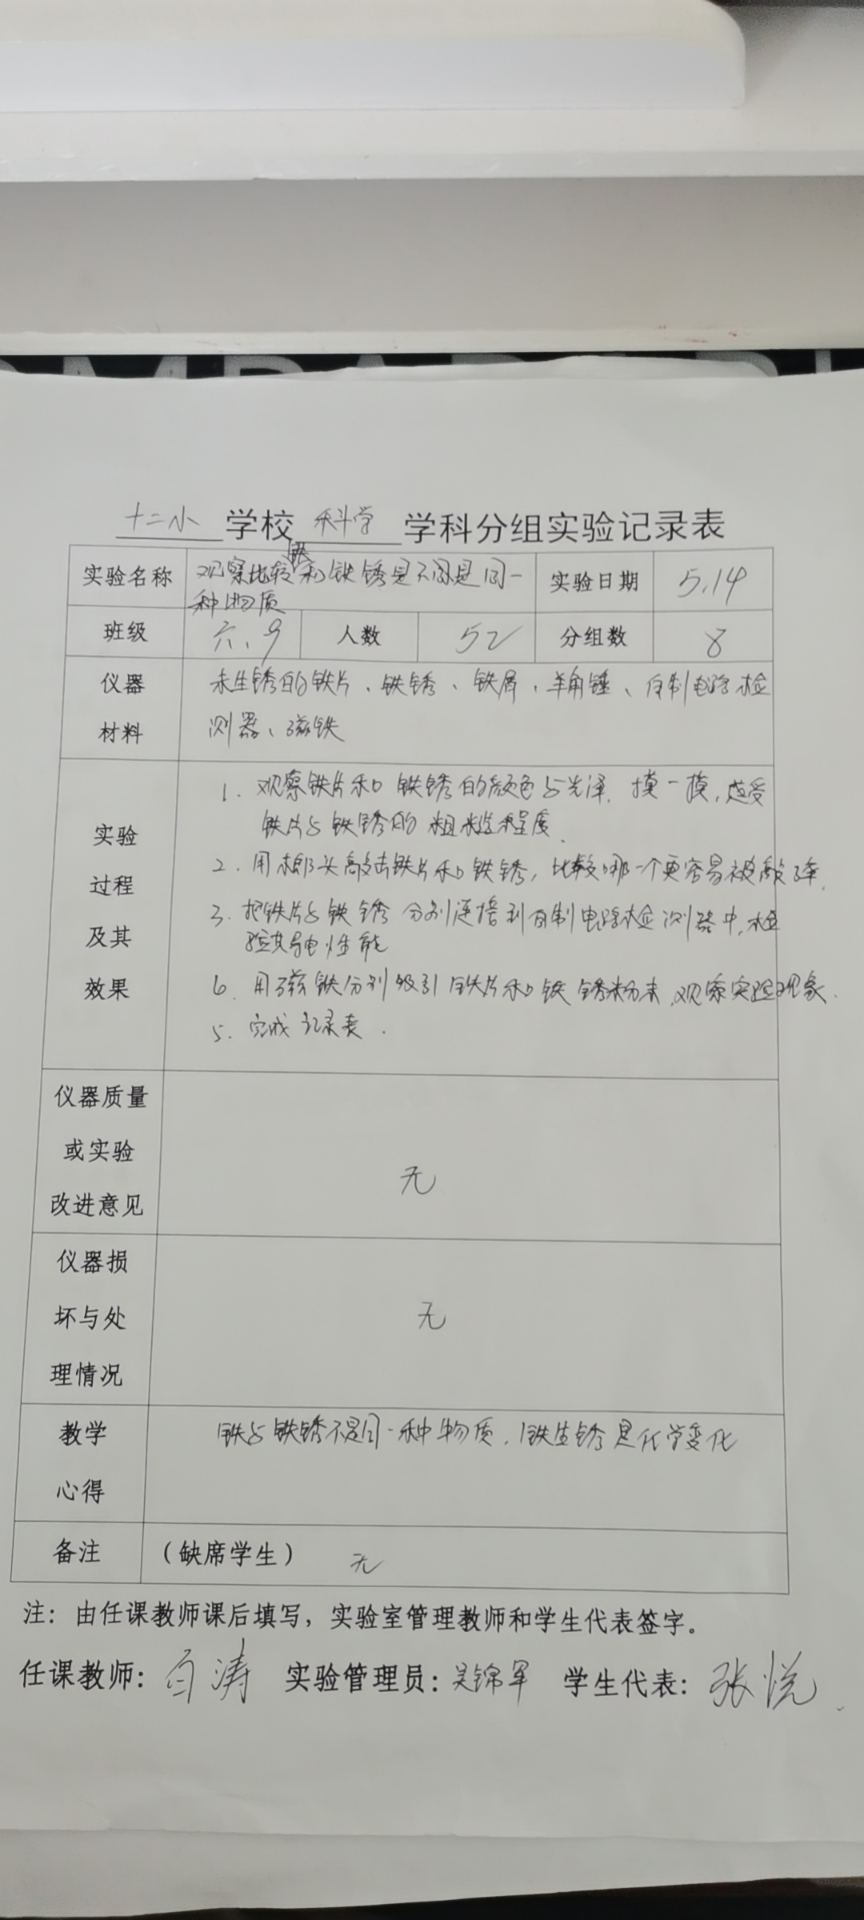 十二小 学校 科学 学科分组实验记录表
实验名称 观察比较铁和铁锈是不是同一种物质 实验日期 5.14
班级 六.9 人数 52 分组数 8
仪器材料 未生锈的铁片、铁锈、铁屑、羊角锤、自制电路检
测器、磁铁
实验过程及其效果
1. 观察铁片和铁锈的颜色与光泽. 摸一摸,感受
铁片与铁锈的粗糙程度.
2. 用榔头敲击铁片和铁锈,比较哪一个更容易被敲碎.
3. 把铁片与铁锈分别连接到自制电路检测器中,检
验其导电性能
6. 用磁铁分别吸引铁片和铁锈粉末,观察实验现象.
5. 完成记录表.
仪器质量或实验改进意见 无
仪器损坏与处理情况 无
教学心得 铁与铁锈不是同一种物质.铁生锈是化学变化
备注 (缺席学生) 无
注:由任课教师课后填写,实验室管理教师和学生代表签字。
任课教师:白涛 实验管理员:吴锦军 学生代表:张悦